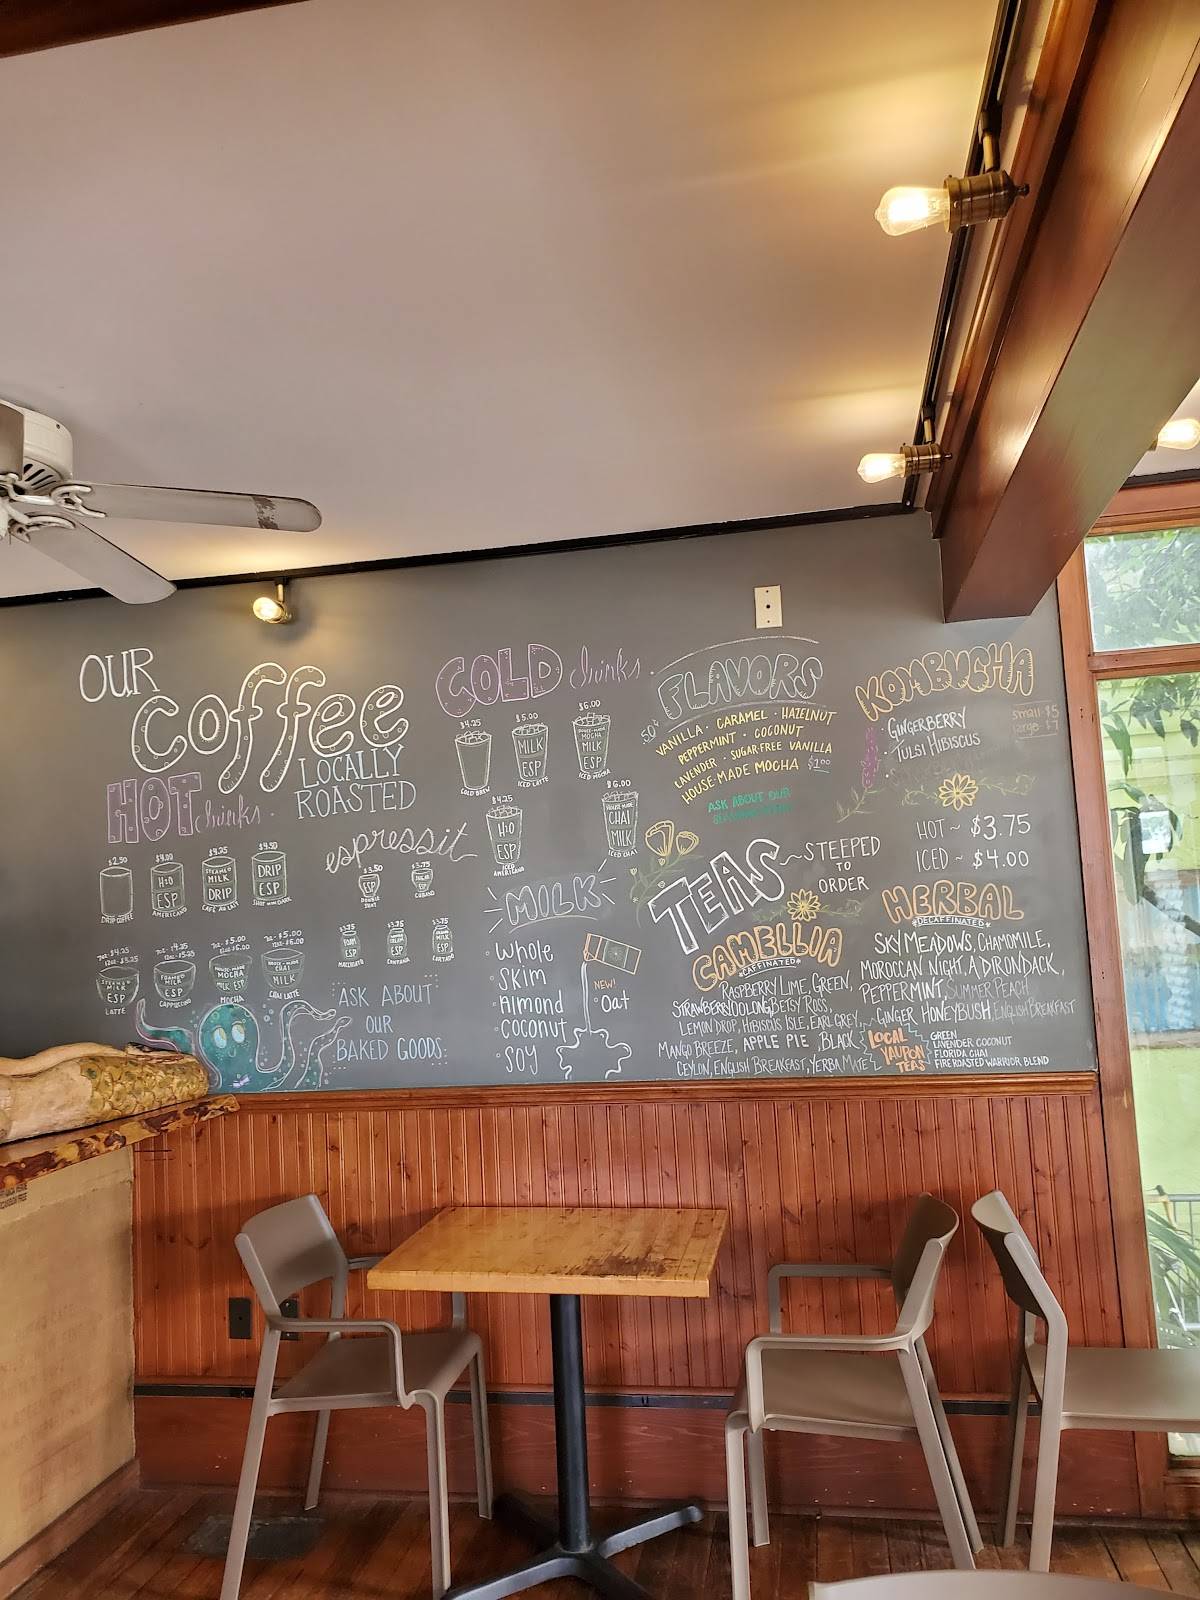 OUR
coffee
LOCALLY
ROASTED
HOT drinks
$2.50
DRIP COFFEE
$4.00
H2O
ESP
AMERICANO
$4.25
STEAMED
MILK
DRIP
CAFÉ AU LAIT
$4.50
DRIP
ESP
SHOT IN THE DARK
7oz - $4.25
12oz - $5.25
STEAMED
MILK
ESP
LATTE
7oz - $4.25
12oz - $5.25
FOAMED
MILK
ESP
CAPPUCCINO
7oz - $5.00
12oz $6.00
HOUSE-MADE
MOCHA
MILK ESP
MOCHA
7oz - $5.00
12oz - $6.00
HOUSE-MADE
CHAI
MILK
CHAI LATTE
espressit
$3.50
ESP
DOUBLE
SHOT
$3.75
SUGAR
ESP
CUBANO
$3.75
FOAM
ESP
MACCHIATO
$3.75
ESP
$3.75
ESP
CORTADO
ASK ABOUT
OUR
BAKED GOODS
COLD drinks
$4.25
COLD BREW
$5.00
MILK
ESP
ICED LATTE
$6.00
HOUSE-MADE
MOCHA
MILK
ESP
ICED MOCHA
$4.25
H2O
ESP
ICED
AMERICANO
$6.00
HOUSE MADE
CHAI
MILK
ICED CHAI
MILK
whole
skim
Almond
coconut
soy
NEW!
Oat
FLAVORS
.50¢
VANILLA · CARAMEL · HAZELNUT
PEPPERMINT · COCONUT
LAVENDER · SUGAR-FREE VANILLA
HOUSE-MADE MOCHA $1.00
ASK ABOUT OUR
KOMBUCHA
small-$5
large-$7
GINGERBERRY
TULSI HIBISCUS
TEAS ~ STEEPED
TO
ORDER
HOT ~ $3.75
ICED ~ $4.00
CAMELLIA
*CAFFINATED*
RASPBERRY LIME, GREEN,
STRAWBERRY OOLONG, BETSY ROSS,
LEMON DROP, HIBISCUS ISLE, EARL GREY,
MANGO BREEZE, APPLE PIE, BLACK
CEYLON, ENGLISH BREAKFAST, YERBA MATE
HERBAL
*DECAFFINATED*
SKY MEADOWS, CHAMOMILE,
MOROCCAN NIGHT, ADIRONDACK,
PEPPERMINT, SUMMER PEACH
GINGER, HONEYBUSH, ENGLISH BREAKFAST
LOCAL
YAUPON
TEAS
GREEN
LAVENDER COCONUT
FLORIDA CHAI
FIRE ROASTED WARRIOR BLEND